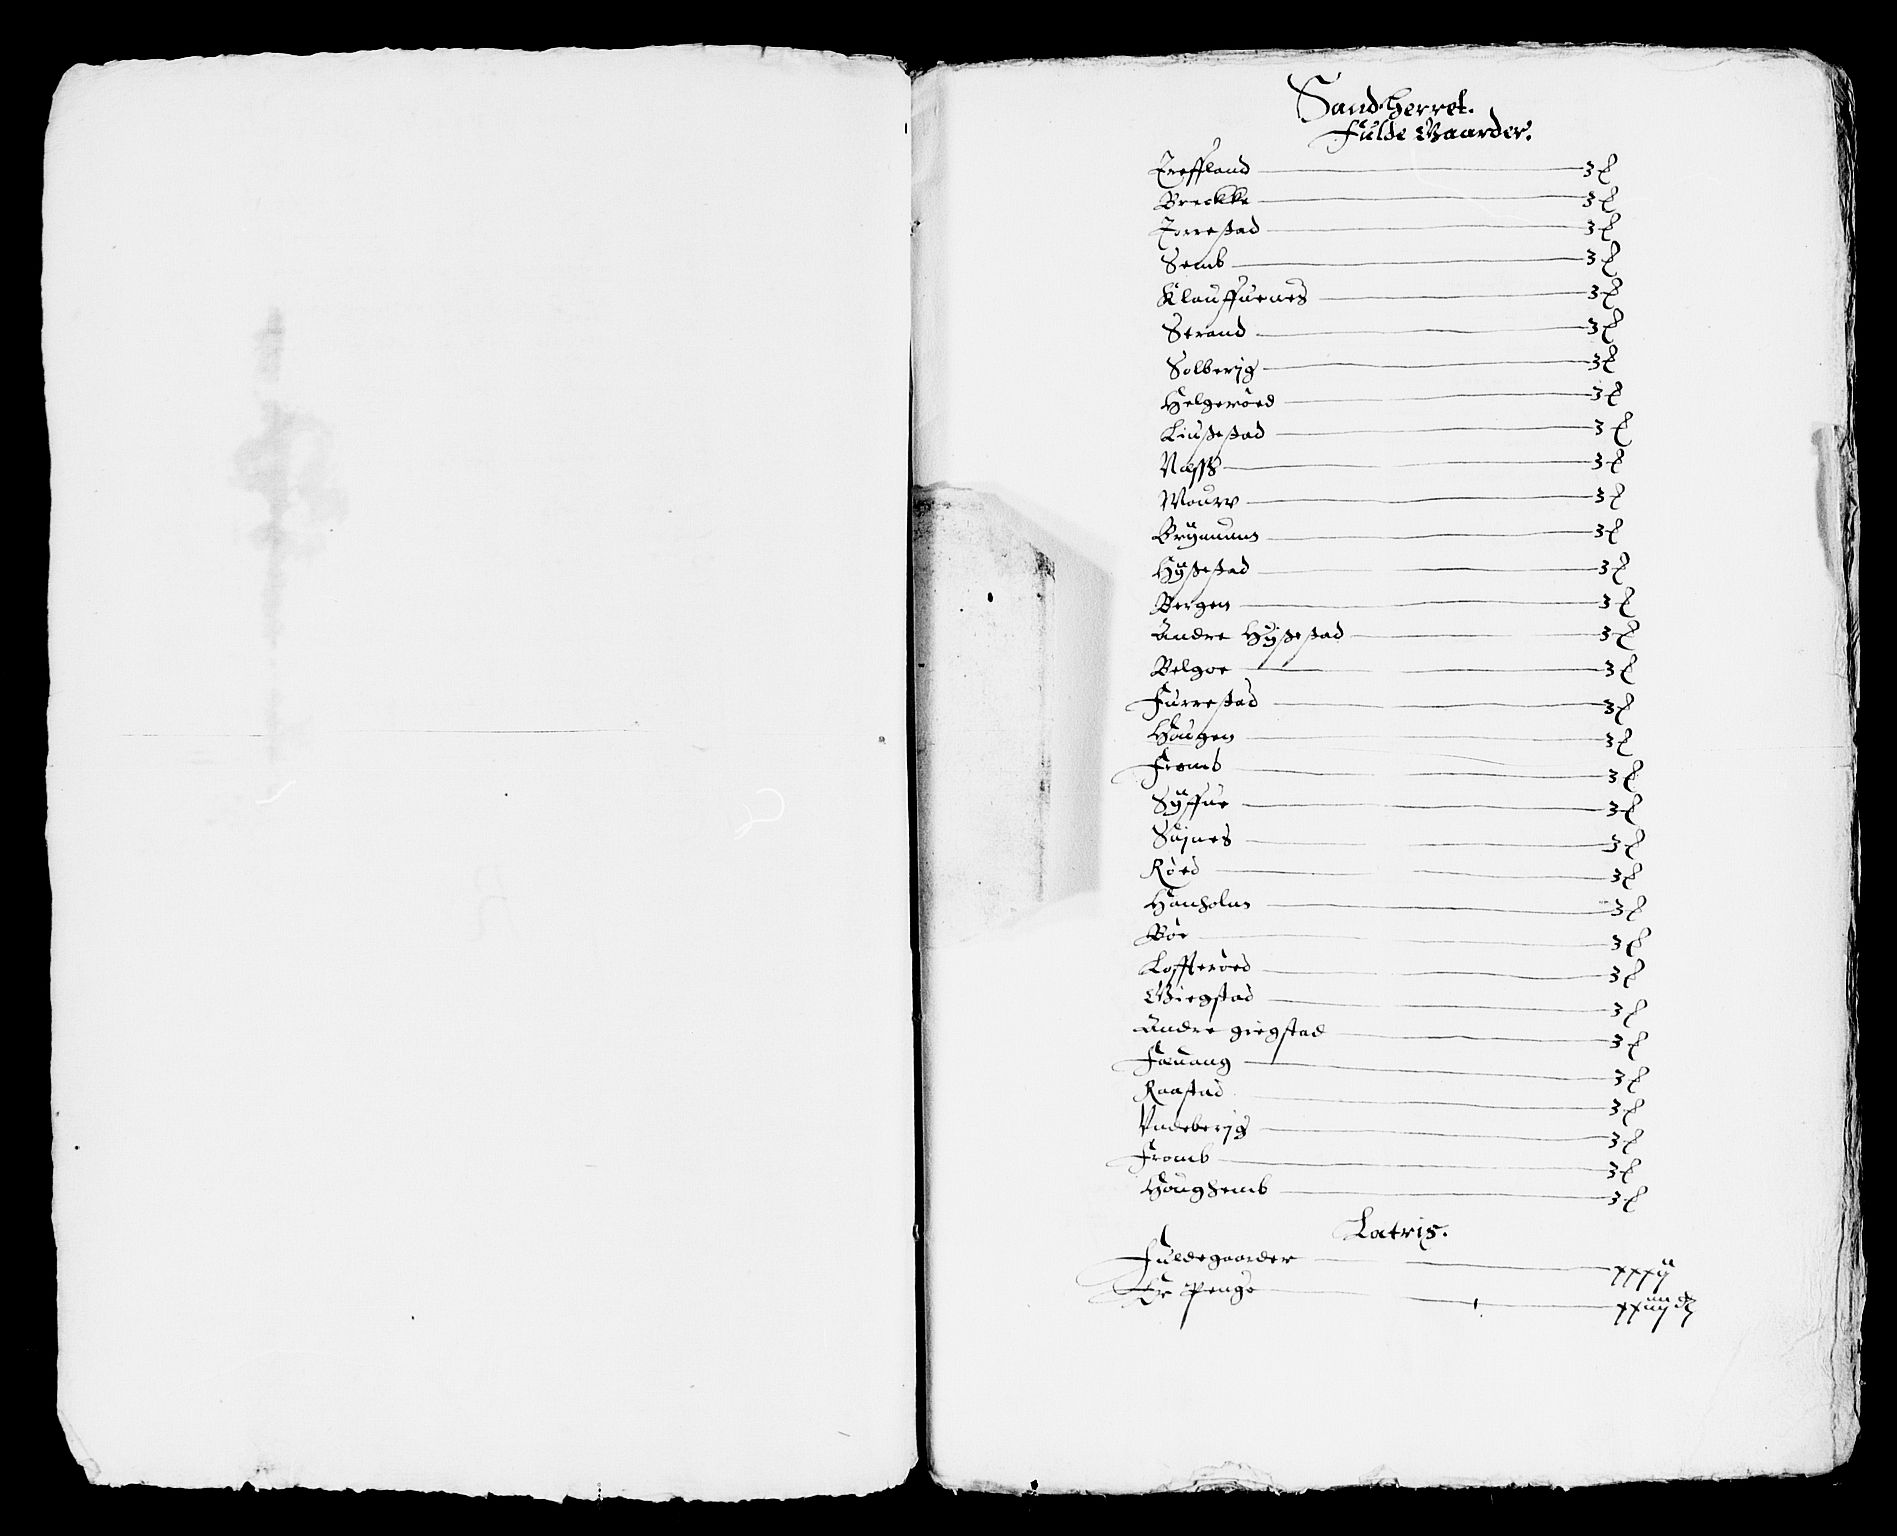 Sandherret.
Fulde Gaarder.
Treffland — 3 ß
Breckke — 3 ß
Torrestad — 3 ß
Semb — 3 ß
Klauffuenes — 3 ß
Strand — 3 ß
Solberjg — 3 ß
Helgerøed — 3 ß
Liustestad — 3 ß
Næss — 3 ß
Mourv — 3 ß
Brÿmunn — 3 ß
Hÿstestad — 3 ß
Bergen — 3 ß
Andre Hÿstestad — 3 ß
Belgoe — 3 ß
Furrestad — 3 ß
Haugen — 3 ß
Framb — 3 ß
Sÿffue — 3 ß
Sujnes — 3 ß
Røed — 3 ß
Hanholm — 3 ß
Bøe — 3 ß
Loffterøed — 3 ß
Giegstad — 3 ß
Andre giegstad — 3 ß
Fæuang — 3 ß
Raastad — 3 ß
Vndeberjg — 3 ß
Framb — 3 ß
Haugsemb — 3 ß
Latris.
Fuldegaarder — xxxij
Er Penge — xxiiij dr